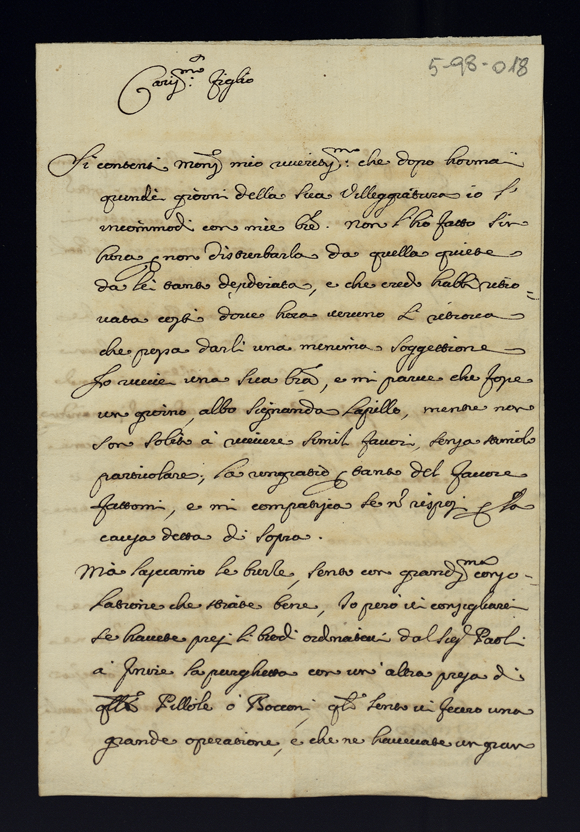 5-98-018
Caris.mo figlio
Si contenti mons.r mio riverit.mo che dopo hormai
quindi giorni della sua Villeggiatura io l'
incommodi con mie l're. non l'hò fatto sin
hora p non disturbarla da quella quiete
da lei tanto desiderata, e che credo habbi ritro=
vata costì dove hora veruno si ritrova
che possa darli una minima soggettione
Io ricevei una sua l'ra, e mi parve che fosse
un giorno, albo signanda lapillo, mentre non
son solito à ricevere simil favori, senza
particolare; la ringratio p tanto del favore
fattomi, e mi compatisca se n' risposi p la
causa detta di sopra.
Mà lasciamo le burle, sento con grandis.ma conso=
latione che stiate bene, Io però vi consigliarei
se havete presi li brodi ordinativi dal Sig.r Paoli
à finire la purghetta con un'altra presa di
Pillole ò Bocconi, sento vi fecero una
grande operatione, e che ne havevate un gran